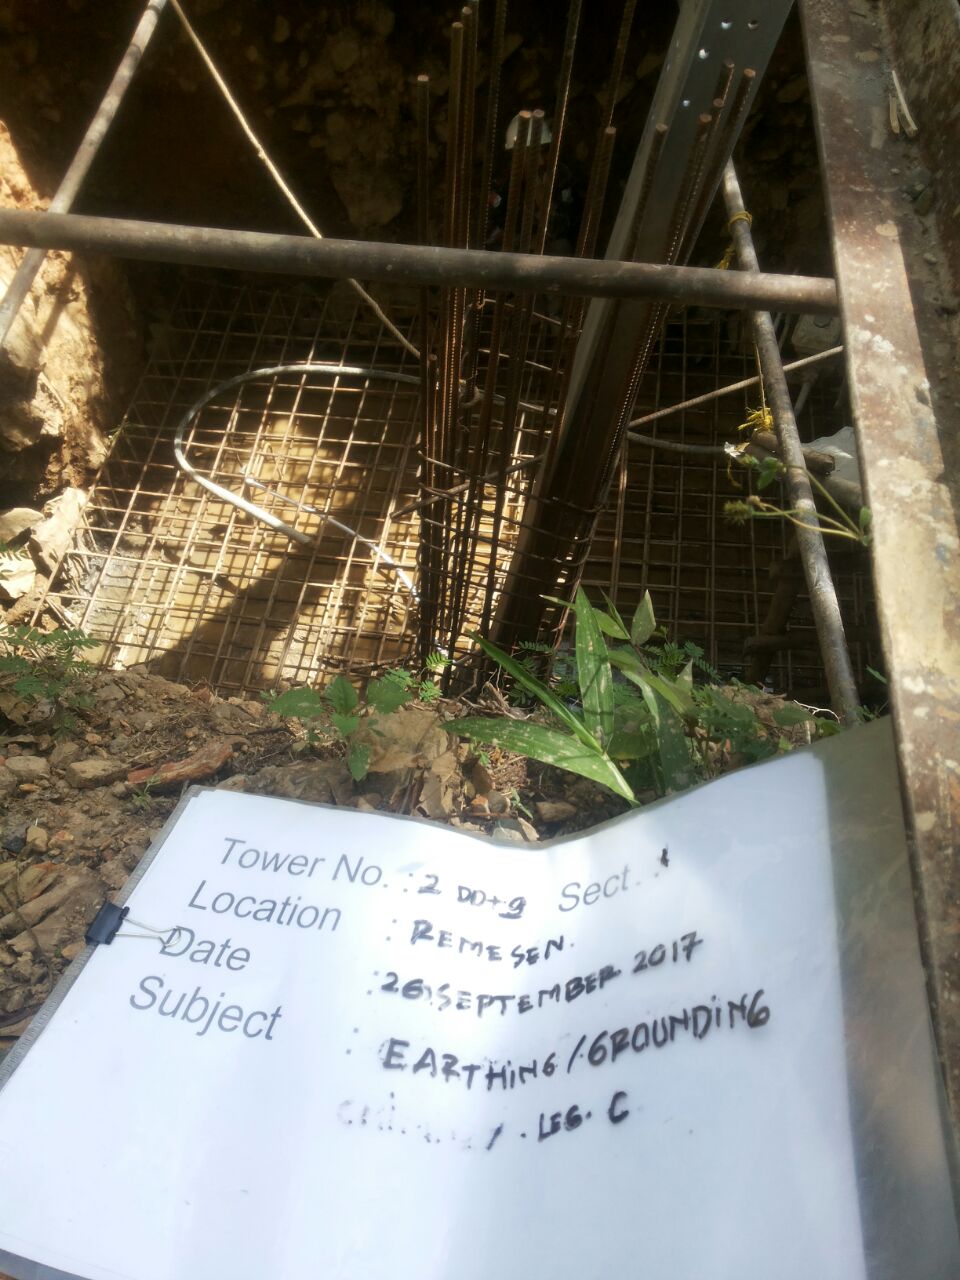 Tower No. : 2 DD+9 Sect. :
Location : REMESEN.
Date : 26 SEPTEMBER 2017
Subject : EARTHING / GROUNDING
/ . LEG. C